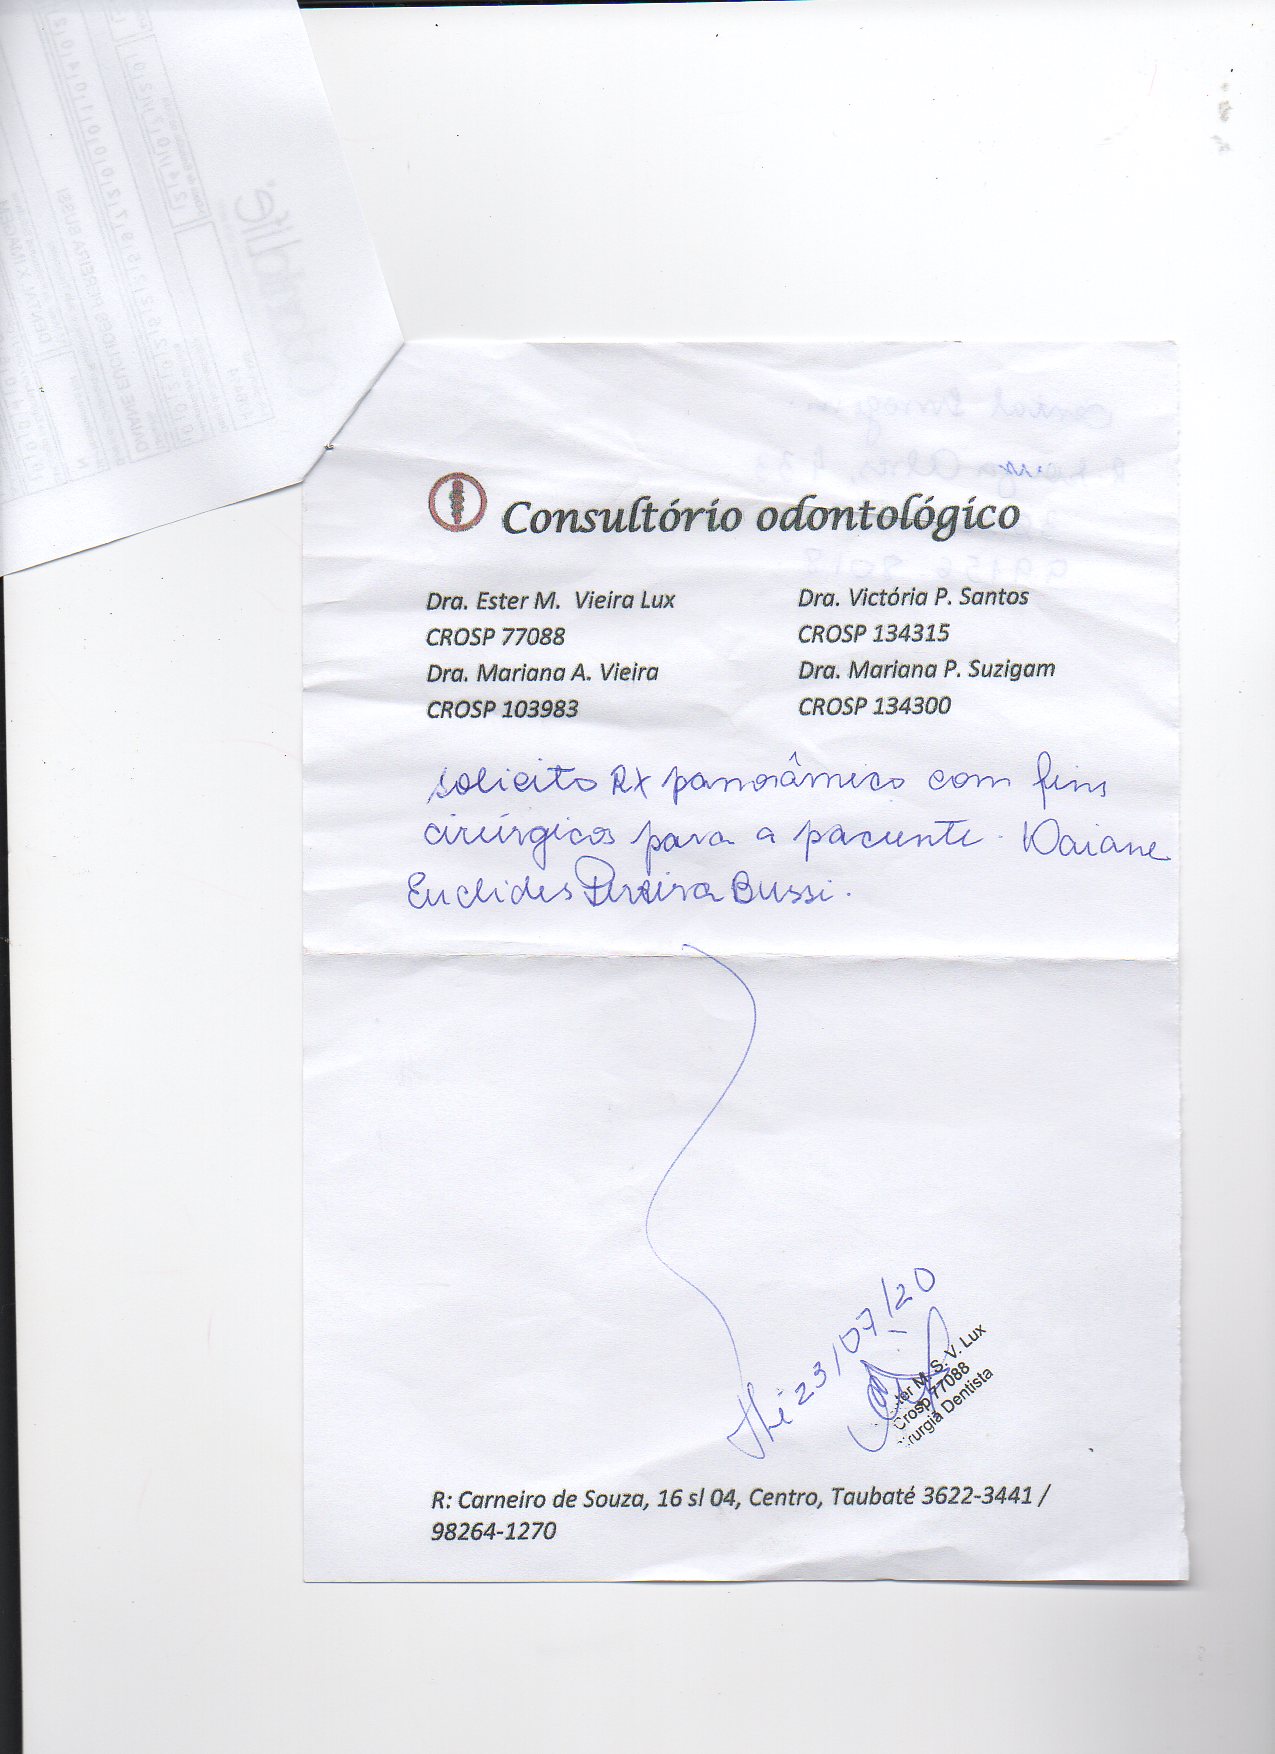 Consultório odontológico
Dra. Ester M. Vieira Lux
CROSP 77088
Dra. Mariana A. Vieira
CROSP 103983
Dra. Victória P. Santos
CROSP 134315
Dra. Mariana P. Suzigam
CROSP 134300
solicito RX panorâmico com fins
cirúrgicos para a paciente Daiane
Euclides Pereira Bussi.
23/07/20
M. S. V. Lux
Crosp 77088
Dentista
R: Carneiro de Souza, 16 sl 04, Centro, Taubaté 3622-3441 /
98264-1270